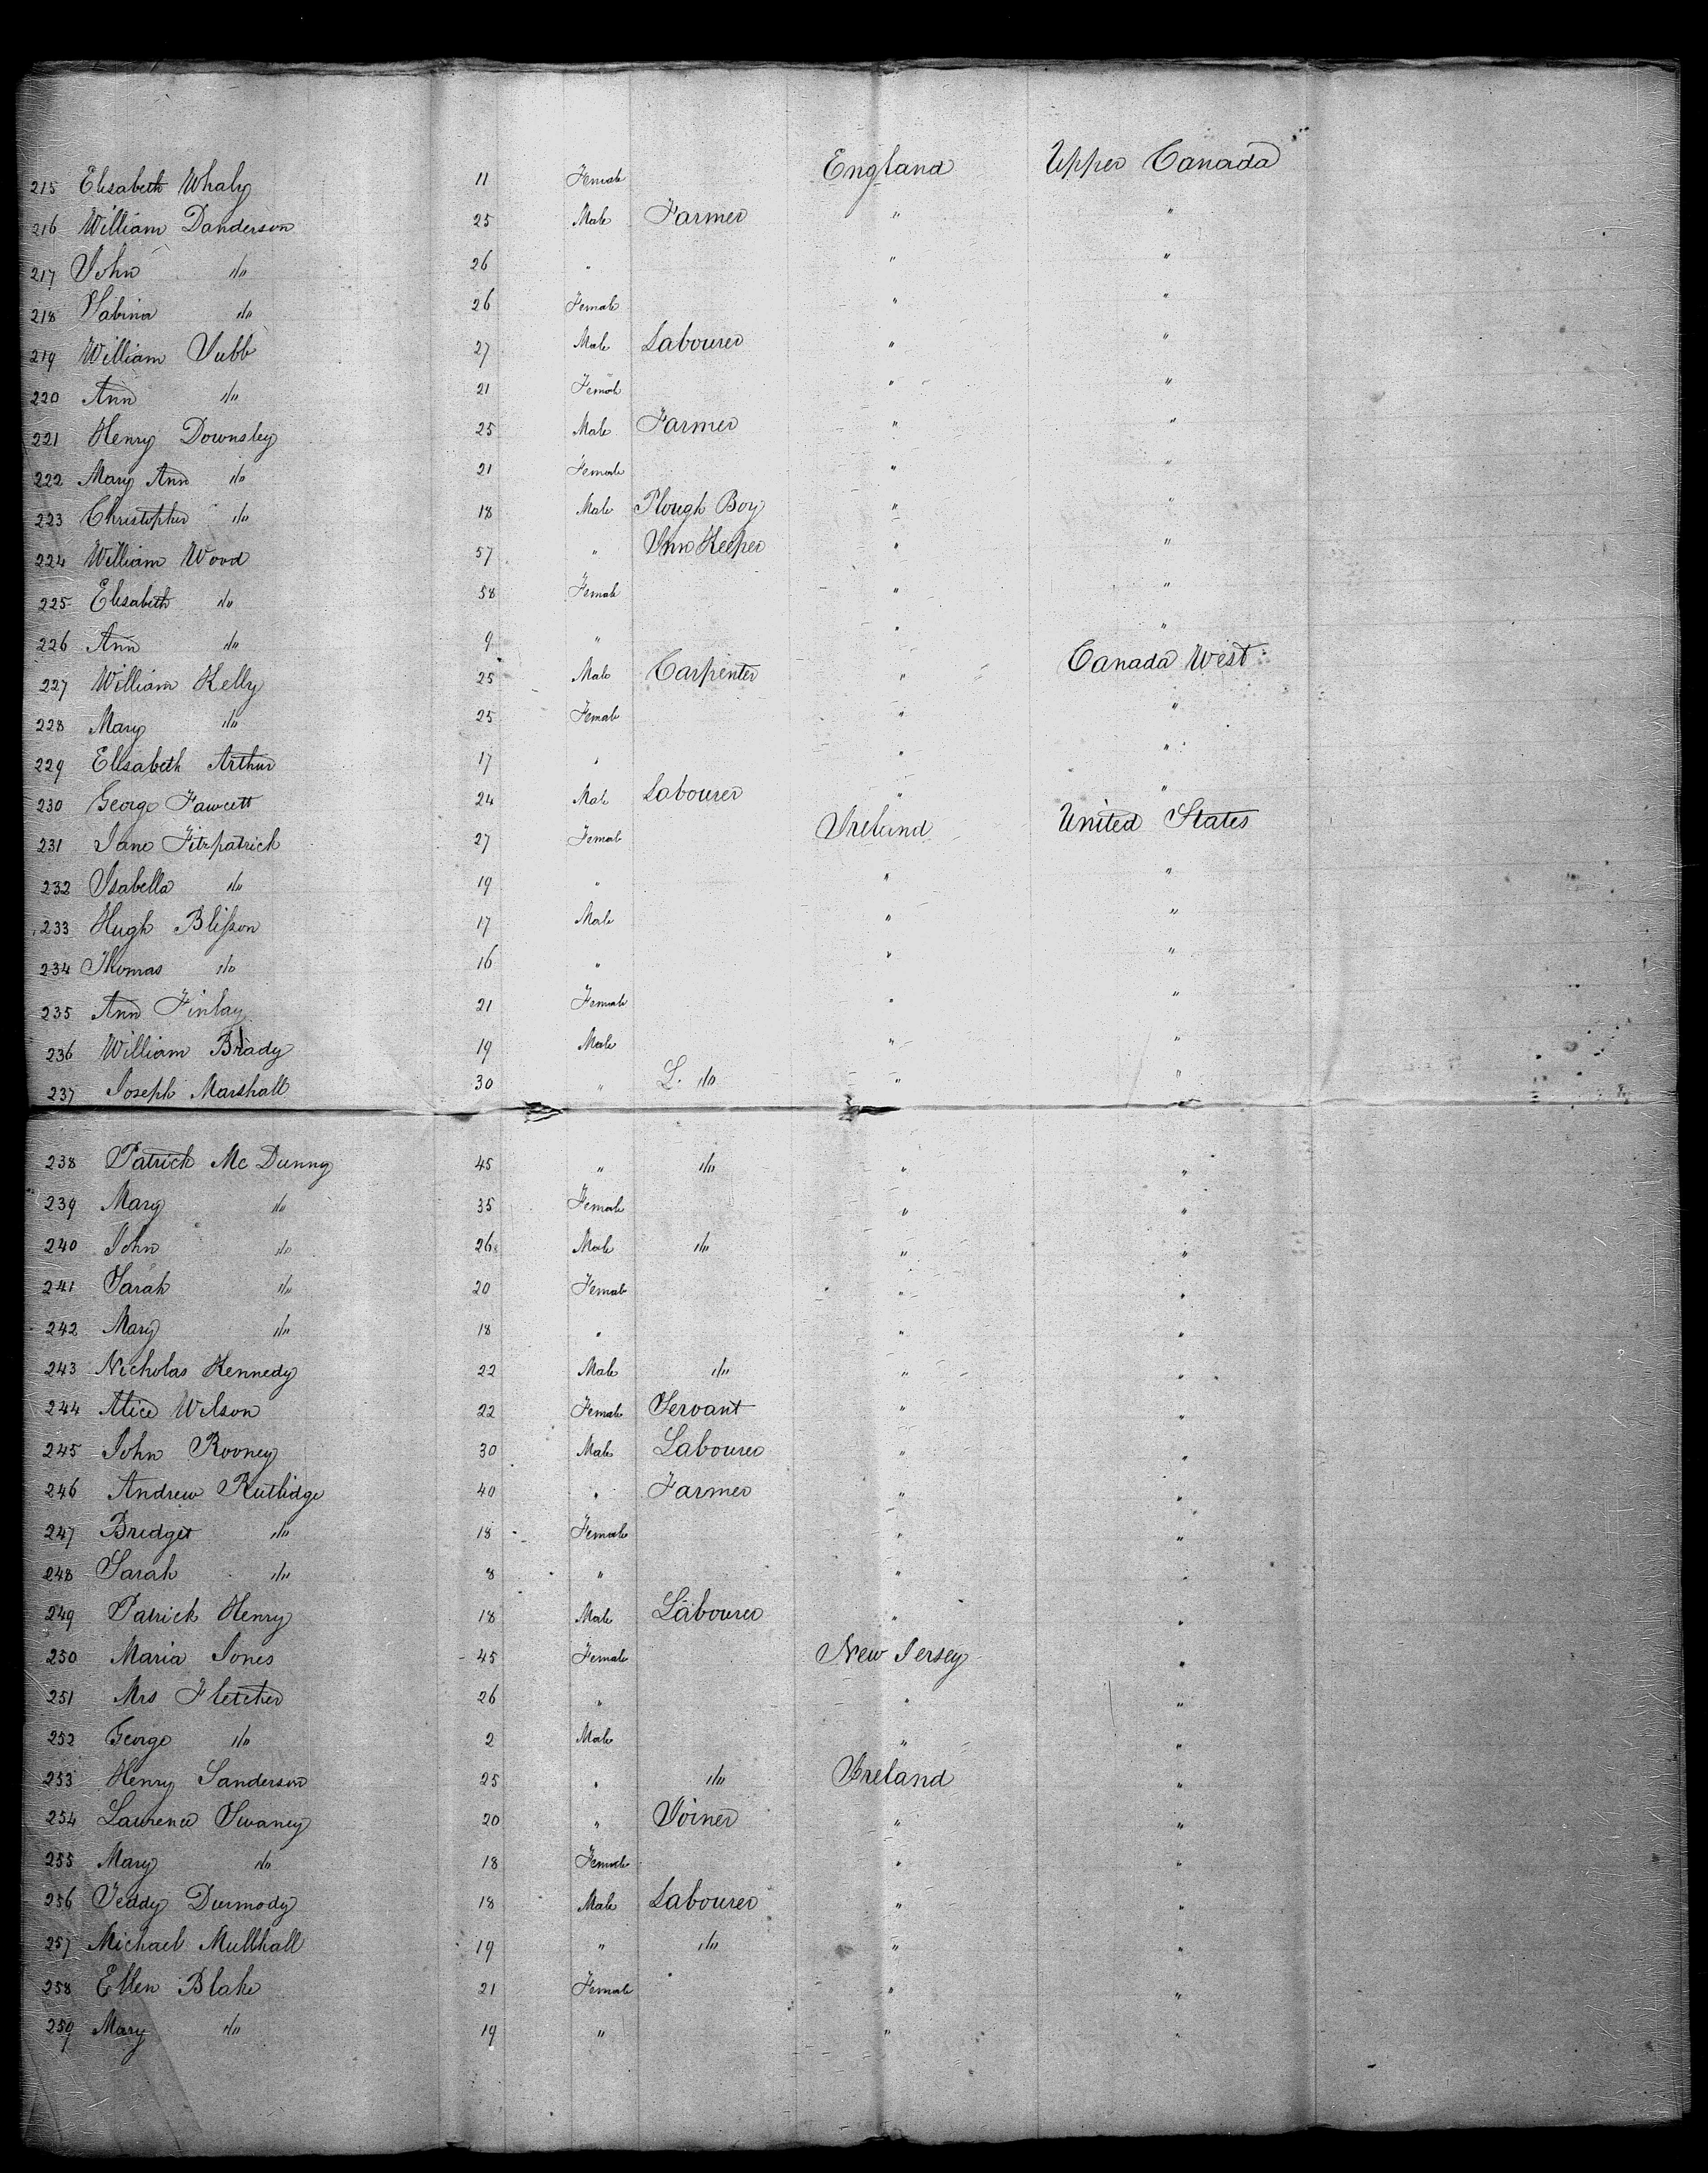 215 Elisabeth Whaly 11 Female England Upper Canada
216 William Danderson 25 Male Farmer " "
217 John do 26 " " "
218 Sabina do 26 Female " "
219 William Jubb 27 Male Labourer " "
220 Ann do 21 Female " "
221 Henry Downsley 25 Male Farmer " "
222 Mary Ann do 21 Female " "
223 Christopher do 18 Male Plough Boy " "
224 William Wood 57 " Inn Keeper " "
225 Elisabeth do 58 Female " "
226 Ann do 9 " " "
227 William Kelly 25 Male Carpenter " Canada West
228 Mary do 25 Female " "
229 Elisabeth Arthur 17 " " "
230 George Fawcett 24 Male Labourer " "
231 Jane Fitzpatrick 27 Female Ireland United States
232 Isabella do 19 " " "
233 Hugh Blisson 17 Male " "
234 Thomas do 16 " " "
235 Ann Finlay 21 Female " "
236 William Brady 19 Male " "
237 Joseph Marshall 30 " L. do " "
238 Patrick Mc Dunny 45 " do " "
239 Mary do 35 Female " "
240 John do 26 Male do " "
241 Sarah do 20 Female " "
242 Mary do 18 " " "
243 Nicholas Kennedy 22 Male do " "
244 Alice Wilson 22 Female Servant " "
245 John Rooney 30 Male Labourer " "
246 Andrew Rutlidge 40 " Farmer " "
247 Bridget do 18 Female " "
248 Sarah do 8 " " "
249 Patrick Henry 18 Male Labourer " "
250 Maria Jones 45 Female New Jersey "
251 Mrs Fletcher 26 " " "
252 George do 2 Male " "
253 Henry Sanderson 25 " do Ireland "
254 Laurence Swaney 20 " Joiner " "
255 Mary do 18 Female " "
256 Teddy Durmody 18 Male Labourer " "
257 Michael Mullhall 19 " do " "
258 Ellen Blake 21 Female " "
259 Mary do 19 " " "